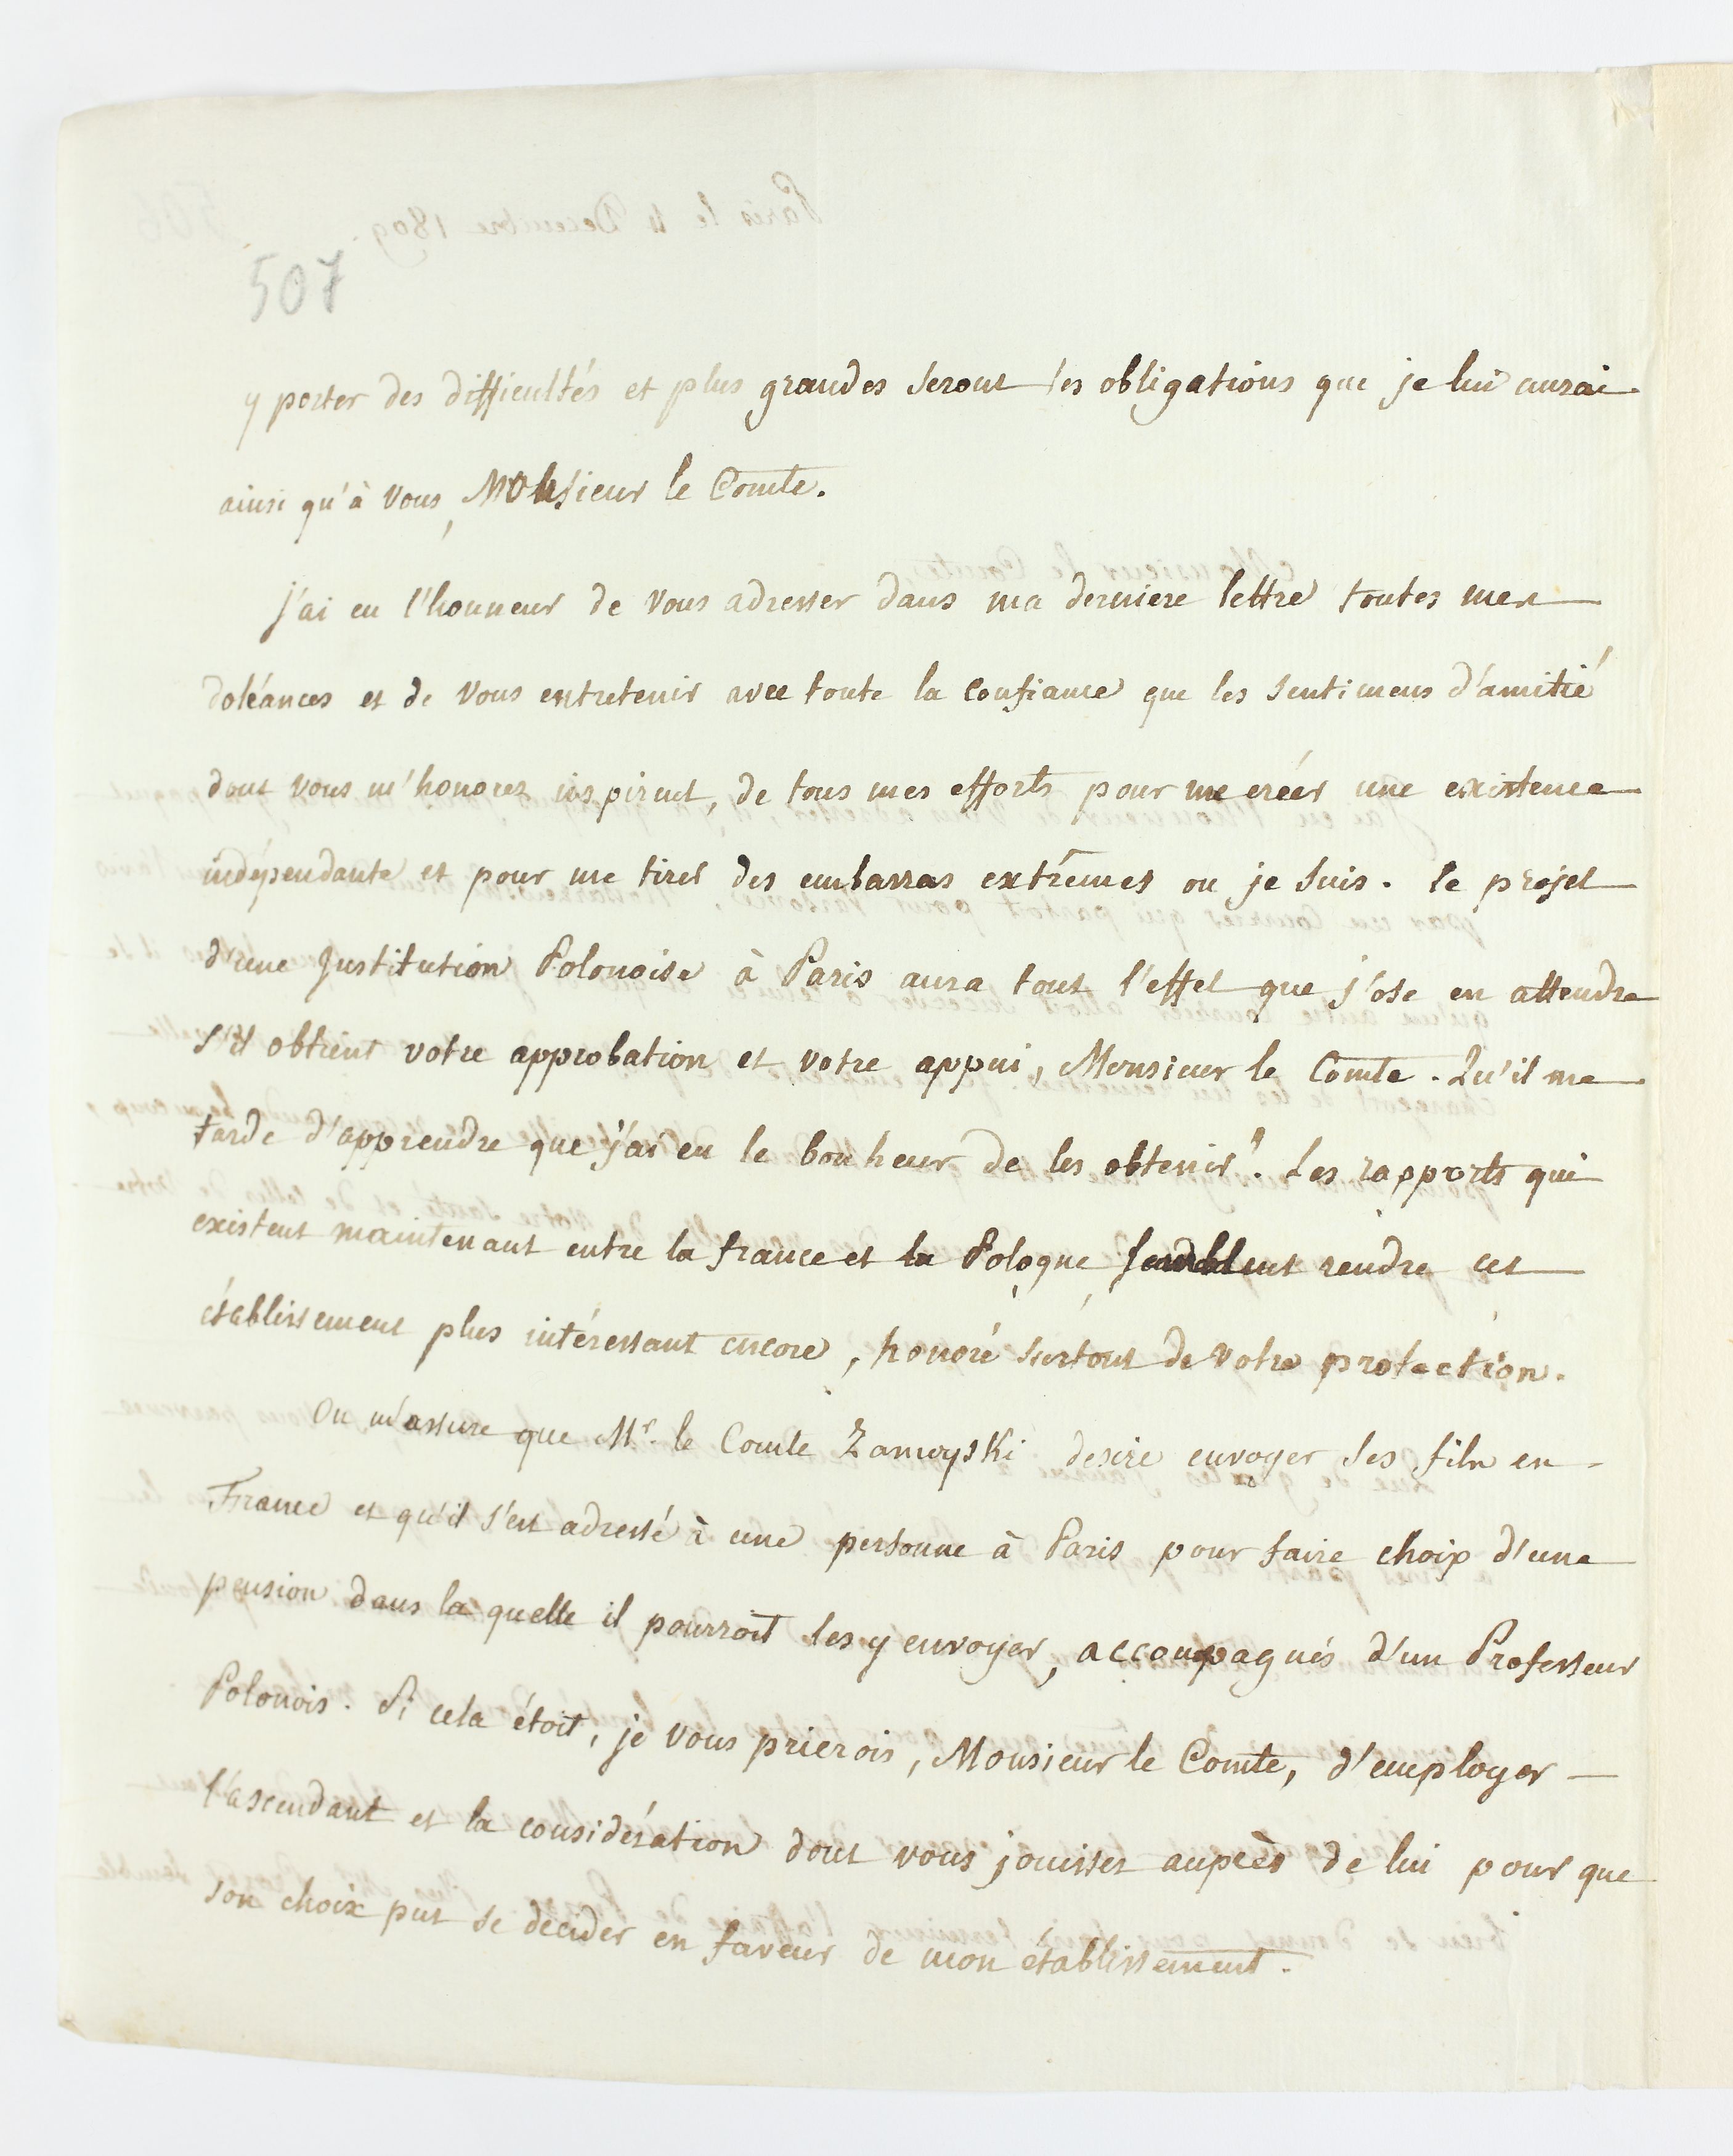 507
y porter des difficultés et plus grandes seront les obligations que je lui aurai
ainsi qu'à Vous, Monsieur le Comte.
J'ai eu l'honneur de Vous adresser dans ma derniere lettre toutes mes
doléances et de Vous entretenir avec toute la confiance que les sentimens d'amitié
dont vous m'honorez inspirent, de tous mes efforts pour me créer une existence
indépendante et pour me tirer des embarras extrêmes ou je suis. le projet
d'une Institution Polonoise à Paris aura tout l'effet que j'ose en attendre
s'il obtient votre approbation et votre appui, Monsieur le Comte. Qu'il me
tarde d'apprendre que j'ai eu le bonheur de les obtenir! Les rapports qui
existent maintenant entre la france et la Pologne, semblent rendre cet
établissement plus intéressant encore, honoré surtout de Votre protection.
On m'assure que Mr. le Comte Zamoyski desire envoyer ses fils en
France et qu'il s'est adressé à une personne à Paris pour faire choix d'une
pension dans la quelle il pourroit les y envoyer, accompagnés d'un Professeur
Polonois. Si cela étoit, je vous prierois, Monsieur le Comte, d'employer
l'ascendant et la considération dont vous jouissez auprès de lui pour que
son choix put se decider en faveur de mon établissement.